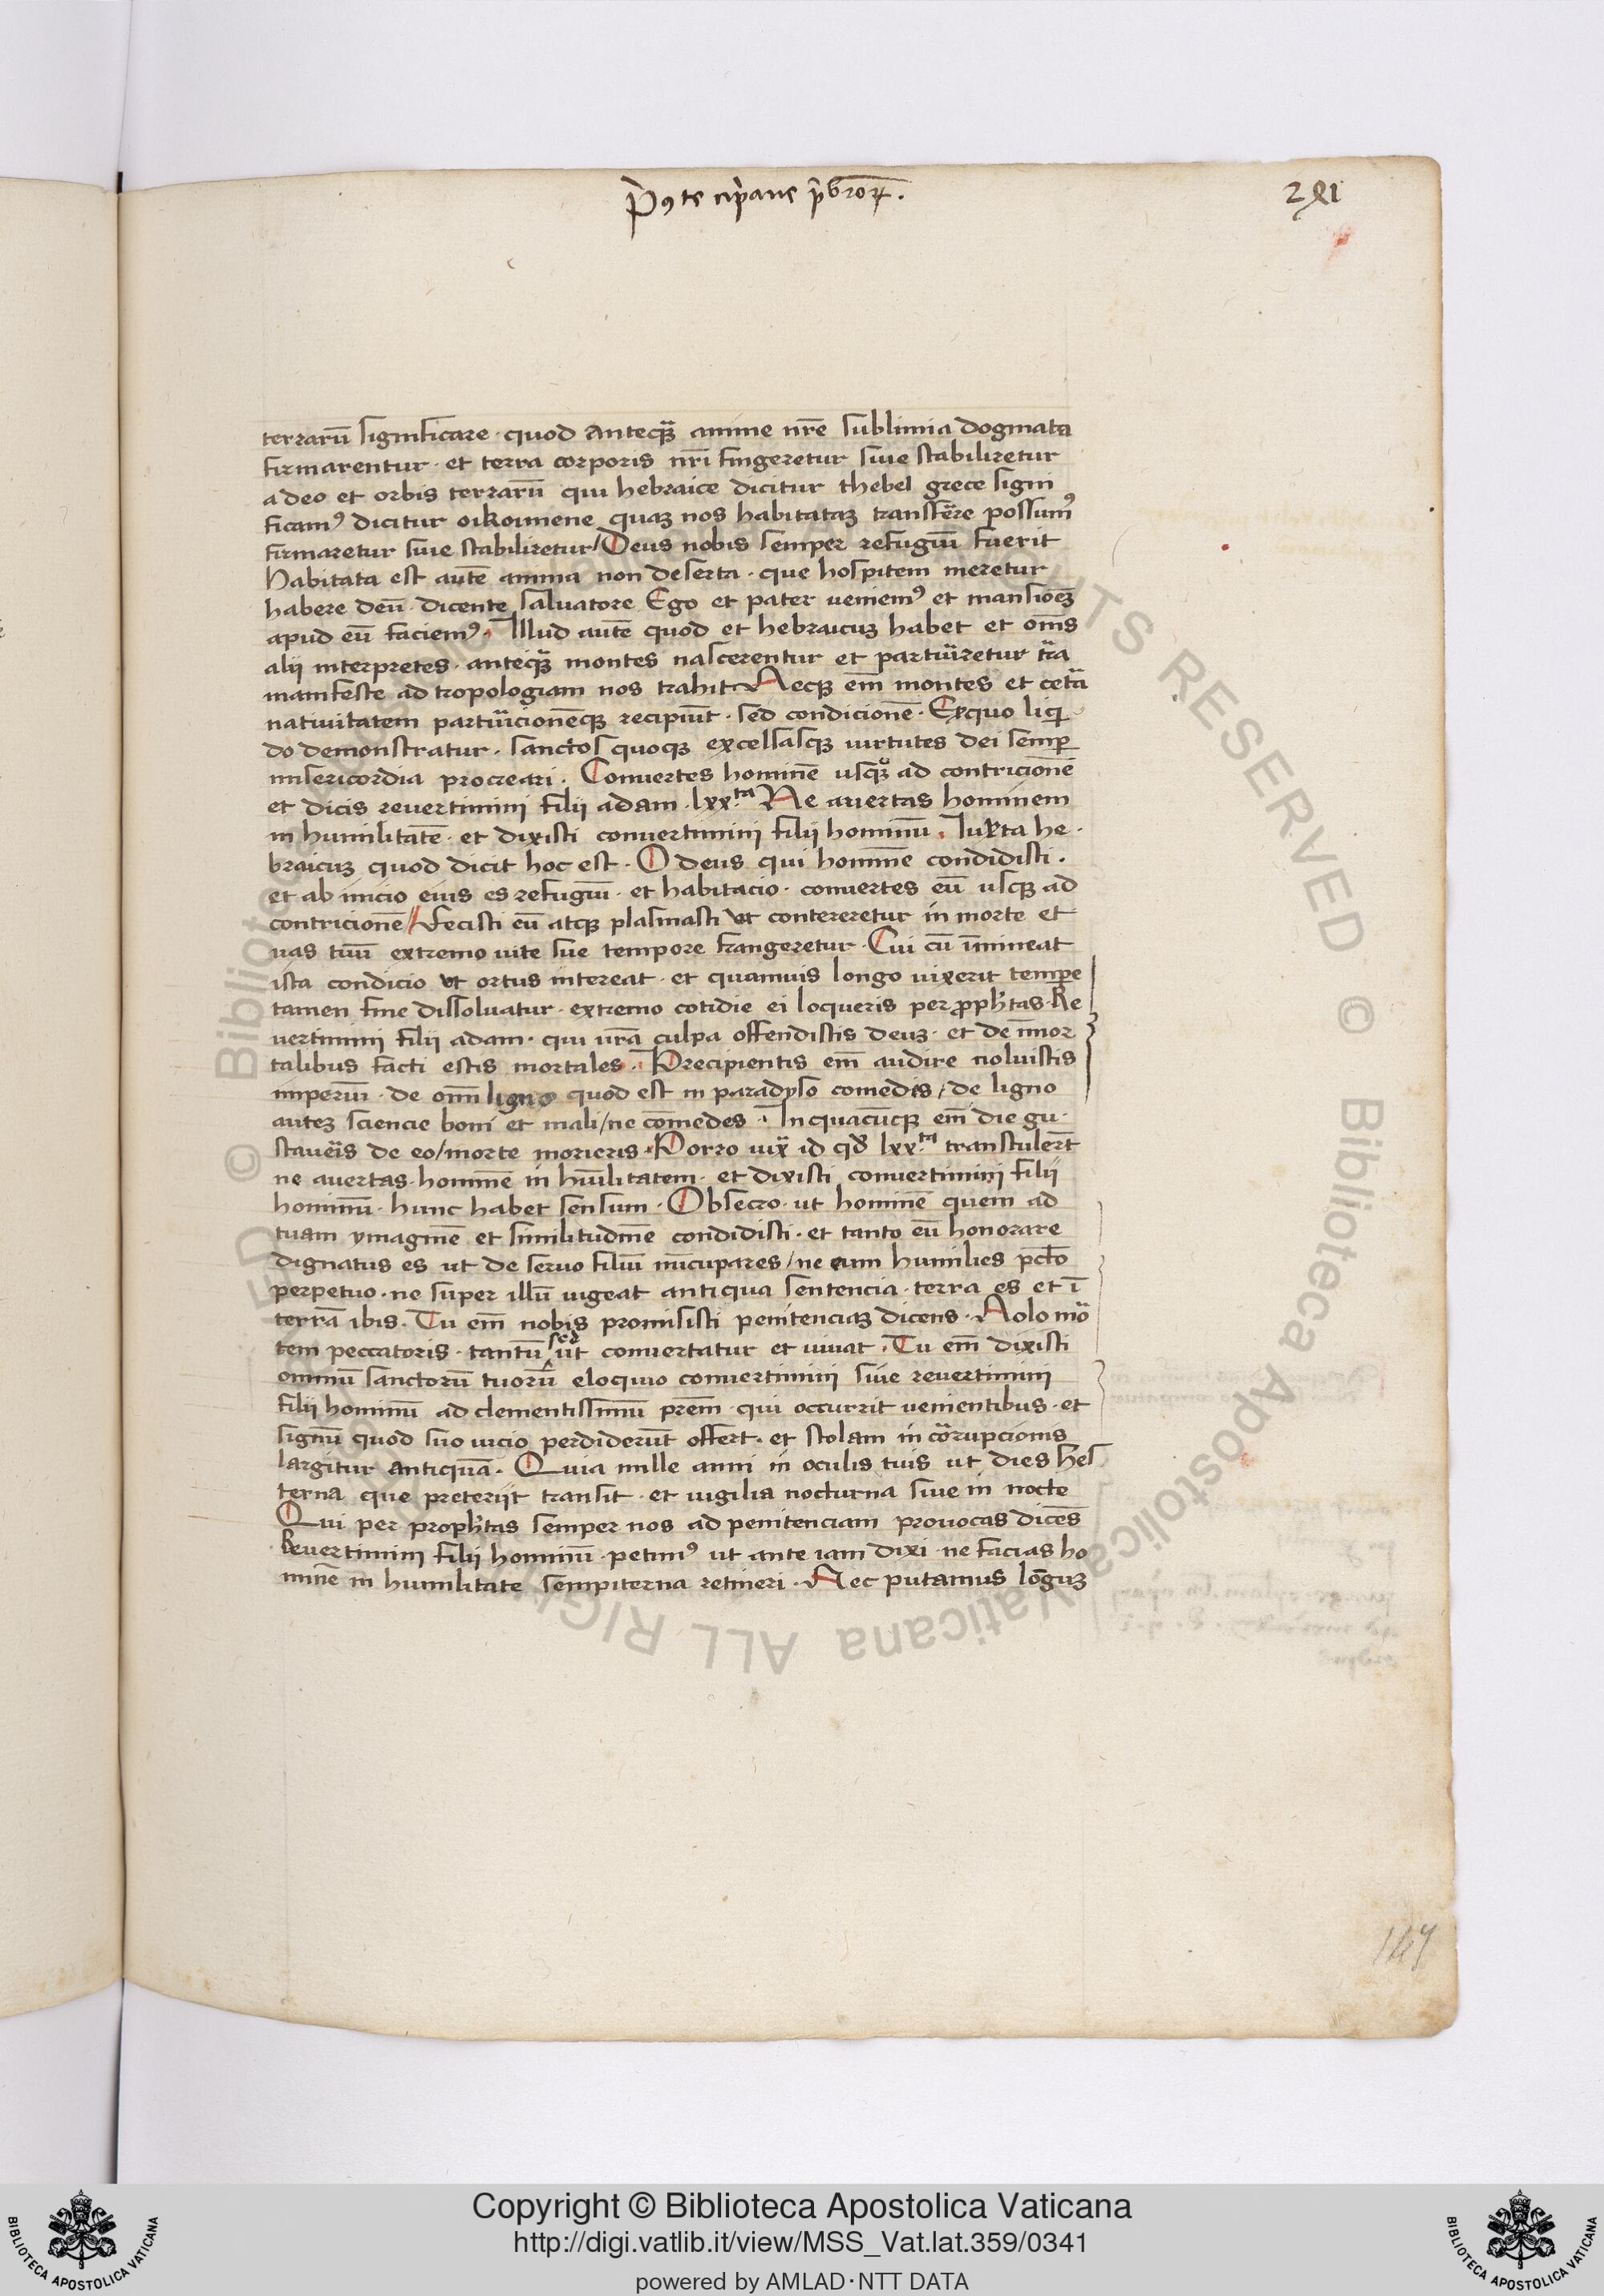 P̄us te cip̄ane p̄bror̄ꝝ.
2XI
terrarū significare · quod anteqȝ̄ anime nr̄e sublimia dogmata
firmarentur · et terra corporis nr̄i fingeretur siue stabiliretur
a deo et orbis terrarū qui hebraice dicitur thebel grece signi
ficamꝰ dicitur oikoimene quaȝ nos habitataȝ transferre possumꝰ
firmaretur siue stabiliretur / Deus nobis semper refugiū fuerit
Habitata est autē anima non deserta · que hospitem meretur
habere deū · dicente saluatore Ego et pater veniemꝰ et mansiōeȝ
apud eū faciemꝰ · Illud autē quod et hebraicuȝ habet et om̄s
alij interpretes · anteqȝ̄ montes nascerentur et parturiretur tr̄a
manifeste ad tropologiam nos trahit · Necqȝ em̄ montes et cet̄a
natiuitatem parturicionemqȝ recipiūt · sed condicionē · Ex quo liqi
do demonstratur · sanctos quoqȝ excellasqȝ uirtutes dei semꝑ
misericordia procreari · Conuertes hominē usqȝ ad contricionē
et dicis reuertimini filij adam · lxx.ta Ne auertas hominem
in humilitatē · et dixisti conuertimini filij hominū · Iuxta he ·
braicuȝ quod dicit hoc est · O deus qui hominē condidisti ·
et ab inicio eius es refugiū · et habitacio · conuertes eū usqȝ ad
contricionē // Fecisti eū atqȝ plasmasti ut contereretur in morte et
uas tuū extremo uite sue tempore frangeretur · Cui cū īmineat
ista condicio ut ortus intereat · et quamuis longo uixerit tempe
tamen fine dissoluatur · extremo cotidie ei loqueris per ꝓph̄tas · Re
uertimini filij adam · qui ur̄a culpa offendistis deuȝ · et de īmor
talibus facti estis mortales · Precipientis em̄ audire noluistis
imperiū · de om̄i ligno quod est in paradyso comedes / de ligno
auteȝ sciencie boni et mali / ne comedes · In quacūcqȝ em̄ die gu ·
staueris de eo / morte morieris · Porro iux̄ id qd̄ lxx.ta transtulerūt
ne auertas hominē in hūilitatem · et dixisti conuertimini filij
hominū · hunc habet sensum · Obsecro · ut hominē quem ad
tuam ymaginē et similitudinē condidisti · et tanto eū honorare
dignatus es ut de seruo filiū nūcupares / ne eum humilies pct̄o
perpetuo · ne super illū uigeat antiqua sentencia · terra es et ī
terrā ibis · Tu em̄ nobis promisisti penitenciaȝ dicens · Nolo mor
tem peccatoris · tantū sed ut conuertatur et uiuat · Tu em̄ dixisti
omniū sanctorū tuorū eloquio conuertimini siue reuertimini
filij hominū ad clementissimū pr̄em · qui occurrit uenientibus · et
signū quod suo uicio perdiderūt offert · et stolam in corrupcionis
largitur antiquā · Quia mille anni in oculis tuis ut dies hes
terna que preterijt transit · et uigilia nocturna siue in nocte
Qui per proph̄tas semper nos ad penitenciam prouocas dicēs
Reuertimini filij hominū · petimꝰ ut ante iam dixi · ne facias ho
minē in humilitate sempiterna retineri · Nec putamus lōguȝ
Copyright © Biblioteca Apostolica Vaticana
http://digi.vatlib.it/view/MSS_Vat.lat.359/0341
powered by AMLAD·NTT DATA
BIBLIOTECA APOSTOLICA VATICANA
BIBLIOTECA APOSTOLICA VATICANA
© Biblioteca Apostolica Vaticana ALL RIGHTS RESERVED